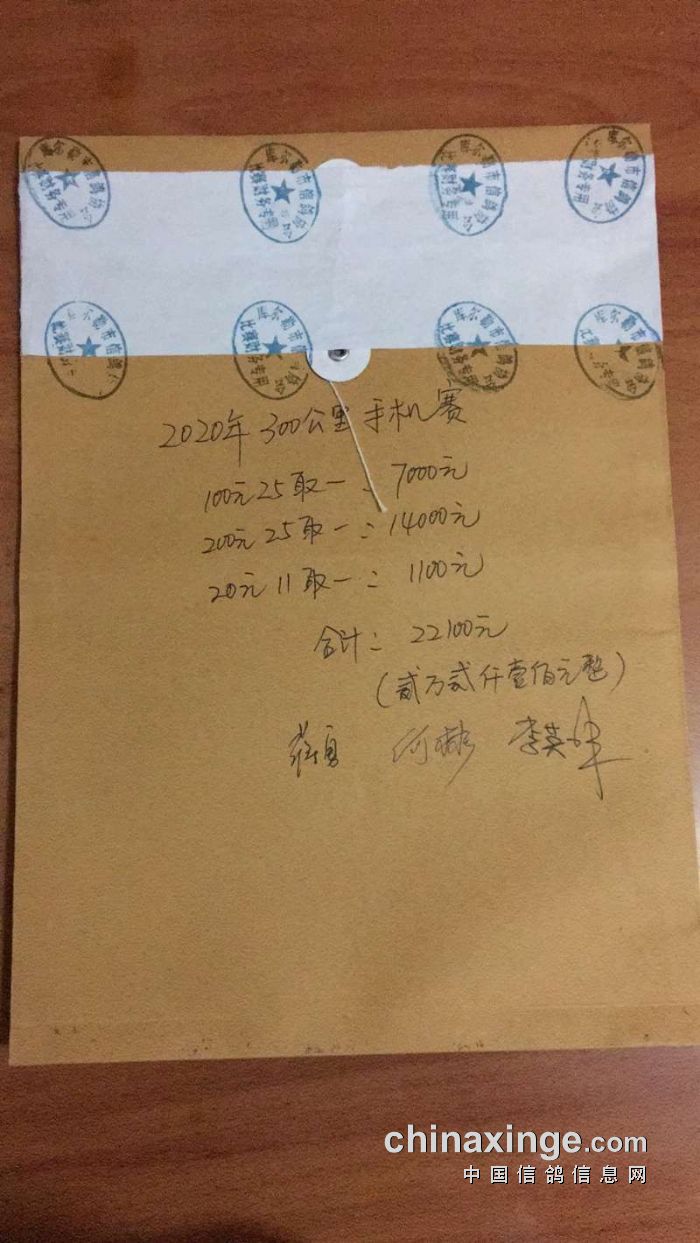 库尔勒市信鸽协会
比赛财务专用
2020年 300公里 手机赛
100元25取一：7000元
200元25取一：14000元
20元11取一：1100元
合计：22100元
(贰万贰仟壹佰元整)
李英
chinaxinge.com
中国信鸽信息网